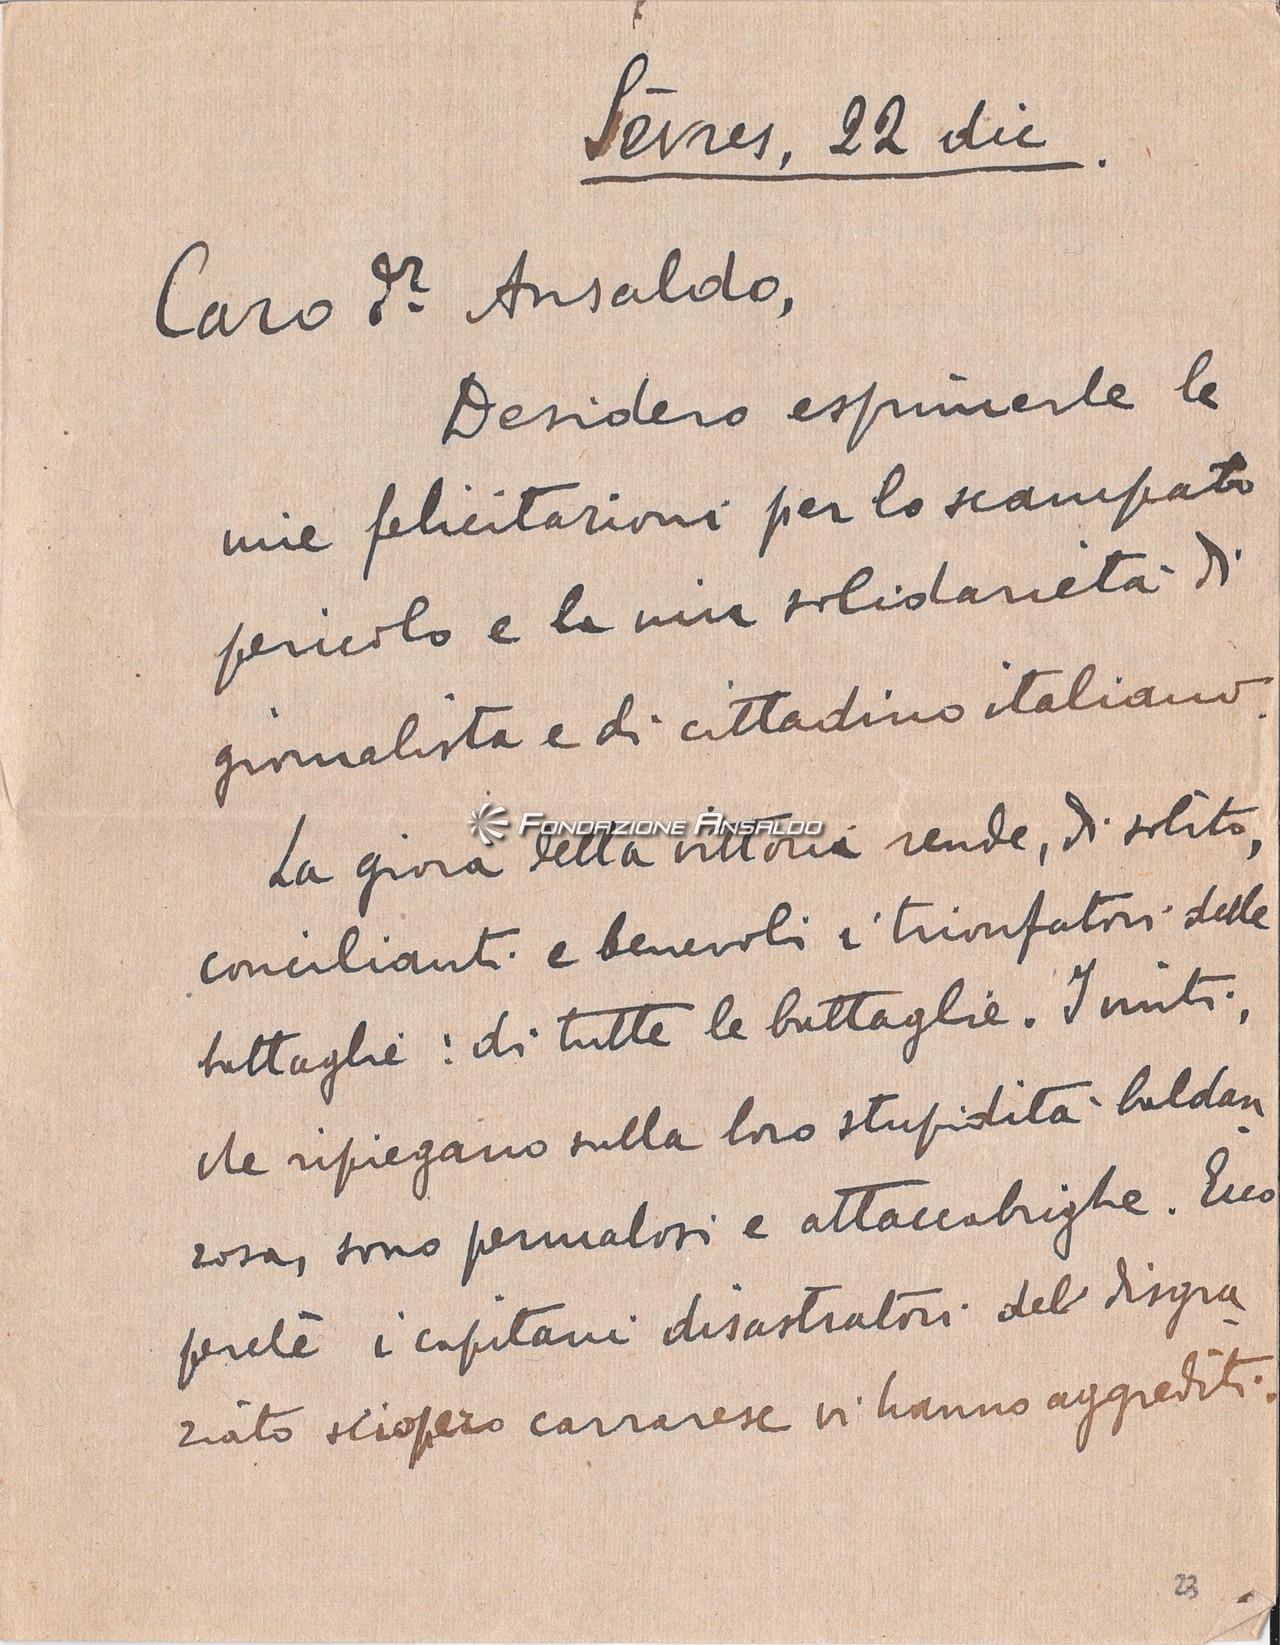 Sèvres, 22 dic.
Caro Dr. Ansaldo,
Desidero esprimerle le
mie felicitazioni per lo scampato
pericolo e la mia solidarietà di
giornalista e di cittadino italiano.
La gioia della vittoria rende, di solito,
FONDAZIONE ANSALDO
concilianti e benevoli i trionfatori delle
battaglie: di tutte le battaglie. I vinti,
che ripiegano sulla loro stupidità baldan
zosa, sono permalosi e attaccabrighe. Ecco
perchè i capitani disastratori del disgra
ziato sciopero carrarese vi hanno aggrediti.
23